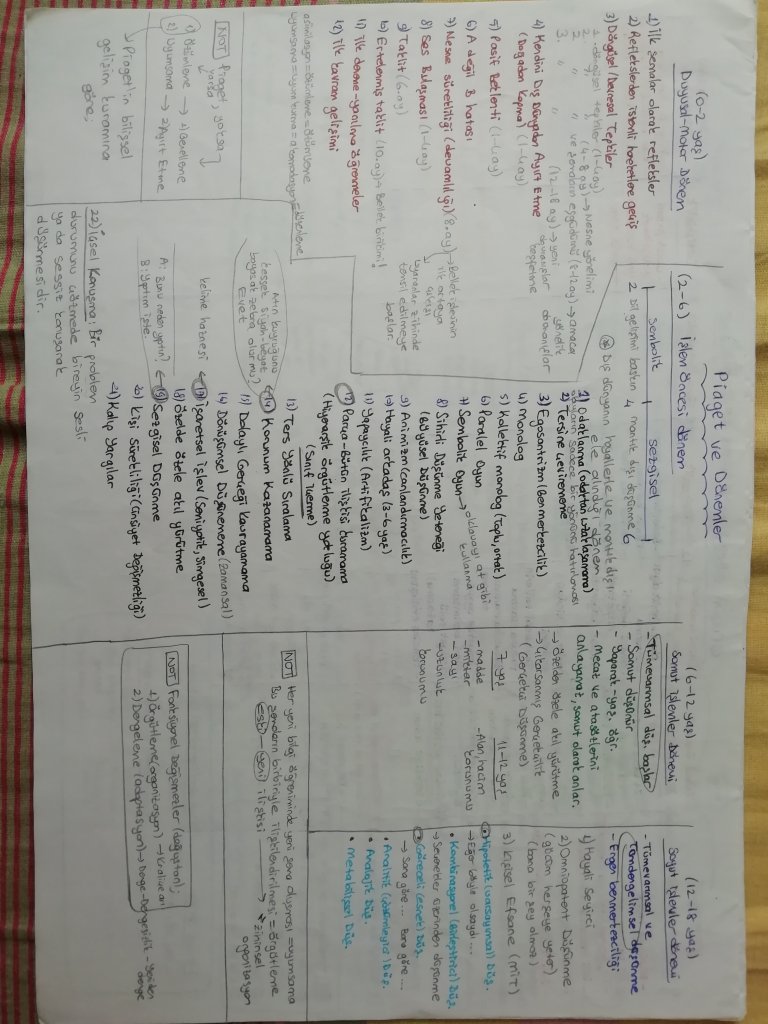 Piaget ve Dönemler
(0-2 yaş)
Duyusal-Motor Dönem
1) İlk şemalar olarak refleksler
2) Reflekslerden istemli hareketlere geçiş
3) Döngüsel/Devresel Tepkiler
1. döngüsel tepkiler (1-4 ay)
2. " " (4-8 ay) → Nesne yönelimi
2. " " ve şemaların eşgüdümü (8-12 ay) → amaca yönelik davranışlar
3. " " (12-18 ay) → yeni davranışlar keşfetme
4) Kendini Dış Dünyadan Ayırt Etme
(Doğadan Kopma) (1-4 ay)
5) Pasif Beklenti (1-4 ay)
6) A değil B hatası
7) Nesne sürekliliği (devamlılığı) (8. ay) → Bellek izlerinin ilk ortaya çıkışı
↓
Uyaranlar zihinde temsil edilmeye başlar.
8) Ses Bulaşması (1-4 ay)
9) Taklit (6. ay)
10) Ertelenmiş taklit (10. ay) + Bellek birikimi!
11) İlk deneme-yanılma öğrenmeler
12) İlk kavram gelişimi
asimilasyon = özümleme = özümseme
uyumsama = uyum kurma = akomodasyon = düzenleme
NOT Piaget yoksa
varsa
1) Özümleme → 1) Genelleme
2) Uyumsama → 2) Ayırt Etme
↓ Piaget'in bilişsel
gelişim kuramına
göre.
(2-6) İşlem Öncesi dönem
sembolik sezgisel
2 dil gelişimi baskın 4 mantık dışı düşünce 6
* Dış dünyanın hayallerle ve mantık dışı
ele alındığı dönem
1) Odaklanma (odaktan uzaklaşamama)
olayların sadece bir yönünü hatırlaması
2) Tersine çevirememe
3) Egosantrizm (Benmerkezcilik)
4) Monolog
5) Kollektif monolog (Toplu, ortak)
6) Paralel Oyun
7) Sembolik Oyun → oklavayı at gibi kullanma
8) Sihirli Düşünme Yeteneği
(Büyüsel Düşünme)
9) Animizm (canlandırmacılık)
10) Hayali arkadaş (3-6 yaş)
11) Yapaycılık (Artifikalizm)
12) Parça-Bütün ilişkisi kuramama
(Hiyerarşik örgütlenme yokluğu)
(Sınıf İçerme)
13) Ters Yönlü Sıralama
14) Korunum Kazanamama
Atın kuyruğunu
kessek siyah-beyaz
boyasak zebra olur mu?
Evet
15) Dolaylı Gerçeği Kavrayamama
16) Dönüşümsel Düşünememe (zamansal)
17) İşaretsel işlev (Semiyotik, simgesel)
kelime haznesi ←
18) Özelden özele akıl yürütme
19) Sezgisel Düşünme
A: Bunu neden yaptın?
B: Yaptım işte.
20) Kişi Sürekliliği (Cinsiyet Değişmezliği)
21) Kalıp Yargılar
22) İçsel Konuşma: Bir problem
durumunu çözmede bireyin sesli
ya da sessiz konuşarak
düşünmesidir.
(6-12 yaş)
Somut İşlemler Dönemi
- Tümevarımsal düş. başlar
- Somut düşünür
- Yaparak-yaş. öğr.
- Mecaz ve atasözlerini
anlayamaz, somut olarak anlar.
→ Özelden özele akıl yürütme
→ Çıkarsanmış Gerçekcilik
(Gerçekçi Düşünme)
7 yaş 11-12 yaş
- madde - Alan, hacim
- miktar korunumu
- sayı
- uzunluk
korunumu
NOT Her yeni bilgi öğreniminde yeni şema oluşması = uyumsama
Bu şemaların birbiriyle ilişkilendirilmesi = örgütleme
eski - yeni ilişkisi → * zihinsel
organizasyon
NOT Fonksiyonel Değişmezler (doğuştan);
1) Örgütleme (organizasyon) → kralıve arı
2) Dengeleme (adaptasyon) → Denge - Dengesizlik - Yeniden
denge
(12-18 yaş)
Soyut İşlemler dönemi
- Tümevarımsal ve
Tümdengelimsel düşünme
- Ergen benmerkezciliği
1) Hayali Seyirci
2) Omnipotent Düşünme
(gücüm herşeye yeter)
(bana bir şey olmaz)
3) Kişisel Efsane (MİT)
• Hipotetik (varsayımsal) Düş.
→ Eğer böyle olsaydı ...
• Kombinasyonel (Birleştirici) Düş.
→ Seçenekler üzerinden düşünme
• Göreceli (esnek) Düş.
→ Sana göre ... Bana göre ...
• Analitik (çözümleyici) Düş.
• Analojik Düş.
• Metabilişsel Düş.